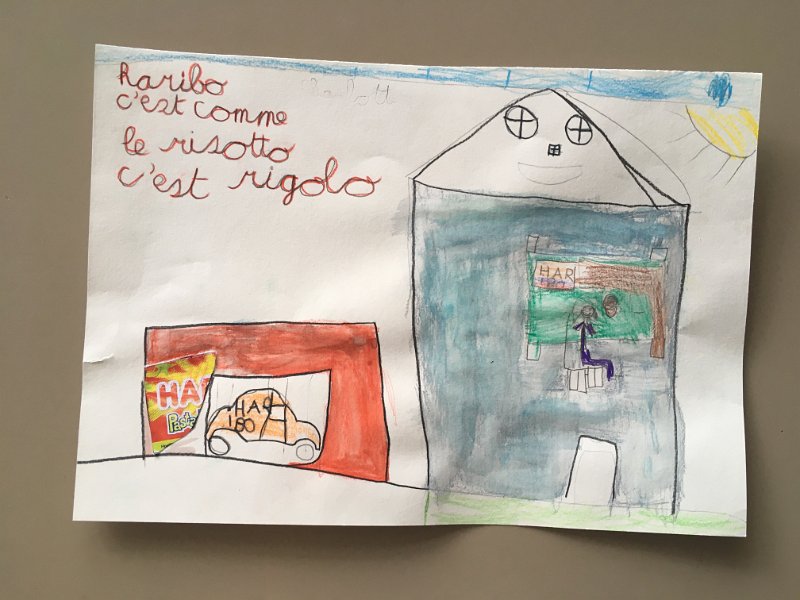 Haribo
c'est comme
le risotto
c'est rigolo
HAR
IBO
HA
Pasta
HAR
IBO